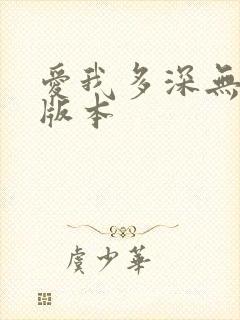 愛我多深無
版本
虞少華